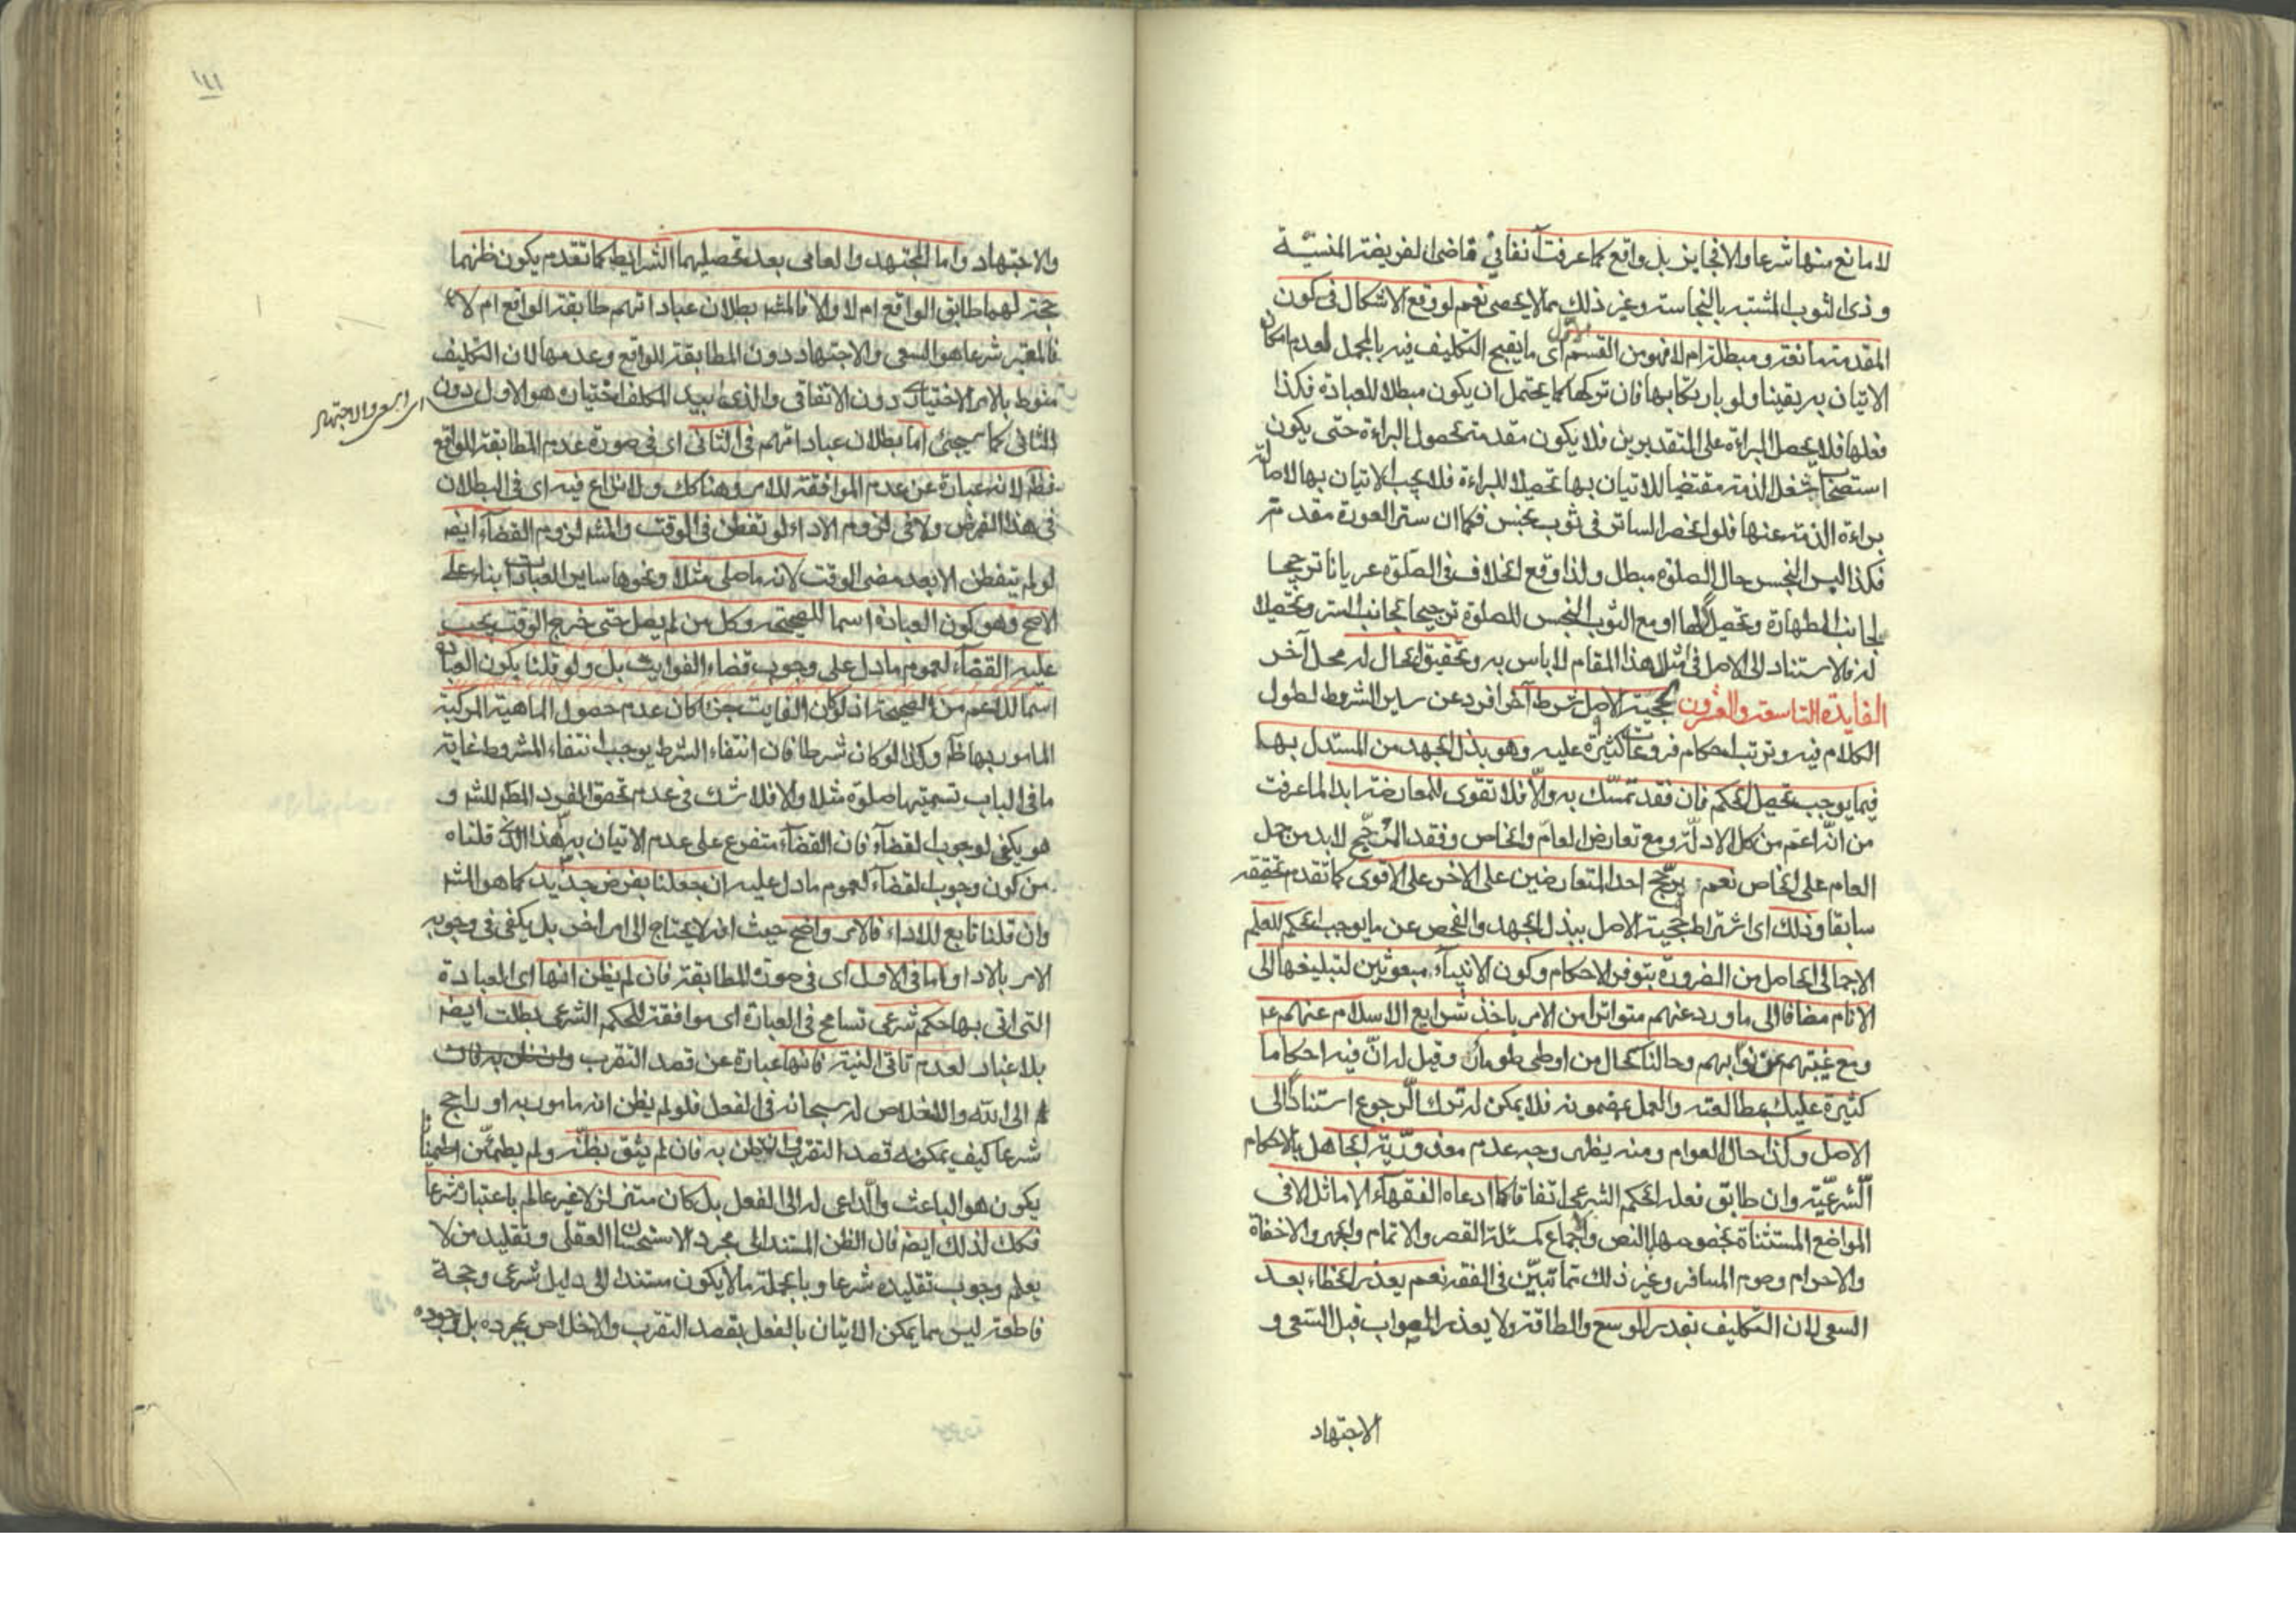 لا مانع منها شرعا والا فجايز بل واقع كما عرفت آنفا في قاضى الفريضة المنسيّة
وذى الثوب المشتبه بالنجاسة وغير ذلك مما لا يحصى نعم لو وقع الاشكال فى كون
المقدمة مانعة ومبطلة ام لا فهو من القسم الاول اى ما يقبح التكليف فيه بالمجمل لعدم امكان
الاتيان به يقينا ولو بارتكابها فان تركها كما يحتمل ان يكون مبطلا للعبادة فكذا
فعلها فلا يحصل البراءة على التقديرين فلا يكون مقدمة لحصول البراءة حتى يكون
استصحاب شغل الذمة مقتضيا للاتيان بها تحصيلا للبراءة فلا يجب الاتيان بها لاصالة
براءة الذمة عنها فلو انحصر الساتر فى ثوب نجس فكما ان ستر العورة مقدمة
فكذا لبس النجس حال الصلوة مبطل ولذا وقع الخلاف فى الصلوة عريانا ترجيحا
لجانب الطهارة وتحصيلا لها او مع الثوب النجس للصلوة ترجيحا لجانب الستر وتحصيلا
له فالاستناد الى الاصل فى مثل هذا المقام لا باس به وتحقيق الحال له محل آخر
الفايدة التاسعة والعشرون لحجية الاصل شرط آخر افرد عن ساير الشروط لطول
الكلام فيه وترتب احكام وفروعات كثيرة عليه وهو بذل الجهد من المستدل بها
فيما يوجب تحصيل الحكم فان فقد تمسّك به والّا فلا تقوى للمعارضة ابدا لما عرفت
من انّه اعم من كل الادلّة ومع تعارض العام والخاص وفقد المرجّح لا بد من حمل
العام على الخاص نعم يرجّح احد المتعارضين على الاخر على الاقوى كما تقدم تحقيقه
سابقا وذلك اى اشتراط حجية الاصل ببذل الجهد والفحص عن ما يوجب الحكم للعلم
الاجمالى الحاصل من الضرورة بتوفر الاحكام وكون الانبياء مبعوثين لتبليغها الى
الانام مضافا الى ما ورد عنهم متواترا من الامر باخذ شرايع الاسلام عنهم ع
ومع غيبتهم عن نوّابهم وحالنا كحال من اوطى طومارا وقيل له انّ فيه احكاما
كثيرة عليك بمطالعته والعمل بمضمونه فلا يمكن له ترك الرجوع استنادا الى
الاصل وكذا حال العوام ومنه يظهر وجه عدم معذوريّة الجاهل بالاحكام
الشرعيّة وان طابق فعله الحكم الشرعى اتفاقا كما ادعاه الفقهاء الاماثل الا فى
المواضع المستثناة بخصوصها بالنص والاجماع كمسئلة القصر والاتمام والجهر والاخفاة
والاحرام وصوم المسافر وغير ذلك مما تبيّن فى الفقه نعم يعذر الخطاء بعد
السعى لان التكليف بقدر الوسع والطاقة ولا يعذر الصواب قبل السّعى و
الاجتهاد
١٤١
والاجتهاد واما المجتهد والعامى بعد تحصيلهما الشرايط كما تقدم يكون ظنهما
حجة لهما طابق الواقع ام لا والا فالمشه بطلان عباداتهم طابقة الواقع ام لا
فالمعتبر شرعا هو السعى والاجتهاد دون المطابقة للواقع وعدمها لان التكليف
منوط بالامر الاختيارى دون الاتفاقى والذى بيد المكلف اختياره هو الاول دون
اى السعى والاجتهاد
الثانى كما سيجئ اما بطلان عباداتهم فى الثانى اى فى صورة عدم المطابقة للواقع
فظم لانه عبارة عن عدم الموافقة للامر وهنا كك ولا نزاع فيه اى فى البطلان
فى هذا الفرض ولا فى لزوم الاداء لو تفطن فى الوقت والمشه لزوم القضاء ايضه
لو لم يتفطن الا بعد مضى الوقت لانه ما صلى مثلا ونحوها ساير العبادات بناء على
الاصح وهو كون العبادة اسما للصحيحة وكل من لم يصل حتى خرج الوقت يجب
عليه القضاء لعموم ما دل على وجوب قضاء الفوايت بل ولو قلنا بكون العبادة
اسما للاعم من الصحيحة اذ لو كان الفايت جزءا كان عدم حصول الماهية المركبة
المامور بها ظم وكذا لو كان شرطا فان انتفاء الشرط يوجب انتفاء المشروط غاية
ما فى الباب تسميتها صلوة مثلا والا فلا شك فى عدم تحقق الفرد المط للشه و
هو يكفى لوجوب القضاء فان القضاء متفرع على عدم الاتيان به هذا الذى قلناه
من كون وجوب القضاء لعموم ما دل عليه ان جعلنا بفرض جديد كما هو المشه
وان قلنا تابع للاداء فالامر واضح حيث انه لا يحتاج الى امر اخر بل يكفى فى وجوبه
الامر بالاداء واما فى الاول اى فى صورة المطابقة فان لم يظن انها اى العبادة
التى اتى بها حكم شرعى تسامح فى العبارة اى موافقة للحكم الشرعى بطلت ايضه
بلا غبار لعدم تاتى النية فانها عبارة عن قصد التقرب
الى الله والاخلاص له سبحانه فى الفعل فلو لم يظن انه مامور به او راجح
شرعا كيف يمكنه قصد التقرب وان ظن به فان لم يثق بظنّه ولم يطمئن اطمينانا
يكون هو الباعث والداعى له الى الفعل بل كان متزلزلا غير عالم باعتباره شرعا
فكك لذلك ايضه فان الظن المستند الى مجرد الاستحسان العقلى وتقليد من لا
يعلم وجوب تقليده شرعا وبالجملة ما لا يكون مستندا الى دليل شرعى وحجة
قاطعة ليس مما يمكن الاتيان بالفعل بقصد التقرب والاخلاص بمجرده بل وجوده